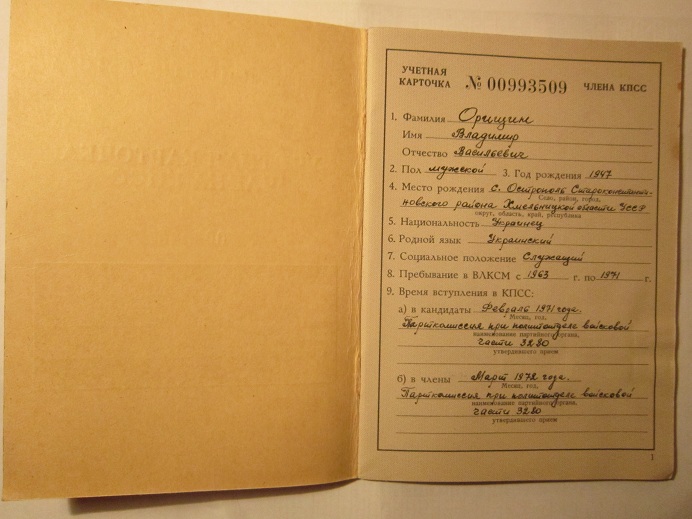 УЧЕТНАЯ
КАРТОЧКА № 00993509 ЧЛЕНА КПСС
1. Фамилия Орищин
Имя Владимир
Отчество Васильевич
2. Пол мужской 3. Год рождения 1947
4. Место рождения с. Остронопль Староконстанти-
Село, район, город,
новского района Хмельницкой области УССР
округ, область, край, республика
5. Национальность Украинец
6. Родной язык Украинский
7. Социальное положение Служащий
8. Пребывание в ВЛКСМ с 1963 г. по 1971 г.
9. Время вступления в КПСС:
а) в кандидаты Февраль 1971 года.
Месяц, год,
Парткомиссия при политотделе войсковой
наименование партийного органа,
части 3280
утвердившего прием
б) в члены Март 1972 года.
Месяц, год,
Парткомиссия при политотделе войсковой
наименование партийного органа,
части 3280
утвердившего прием
1